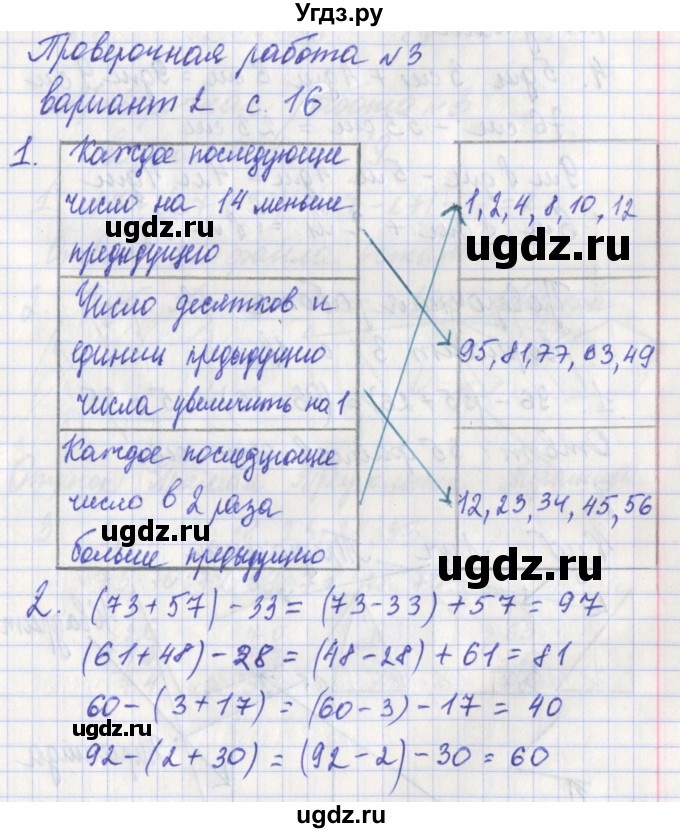 Угдз.ру
Проверочная работа №3
вариант 2 с. 16
1. Каждое последующие
число на 14 меньше
предыдущего
1, 2, 4, 8, 10, 12
ugdz.ru
ugdz.ru
Число десятков и
единиц предыдущио
числа увеличить на 1
95, 81, 77, 63, 49
Каждое последующие
число в 2 раза
больше предыдущио
12, 23, 34, 45, 56
ugdz.ru
ugdz.ru
2. (73+57)-33=(73-33)+57=97
(61+48)-28=(48-28)+61=81
60-(3+17)=(60-3)-17=40
ugdz.ru
92-(2+30)=(92-2)-30=60
ugdz.ru
ugdz.ru